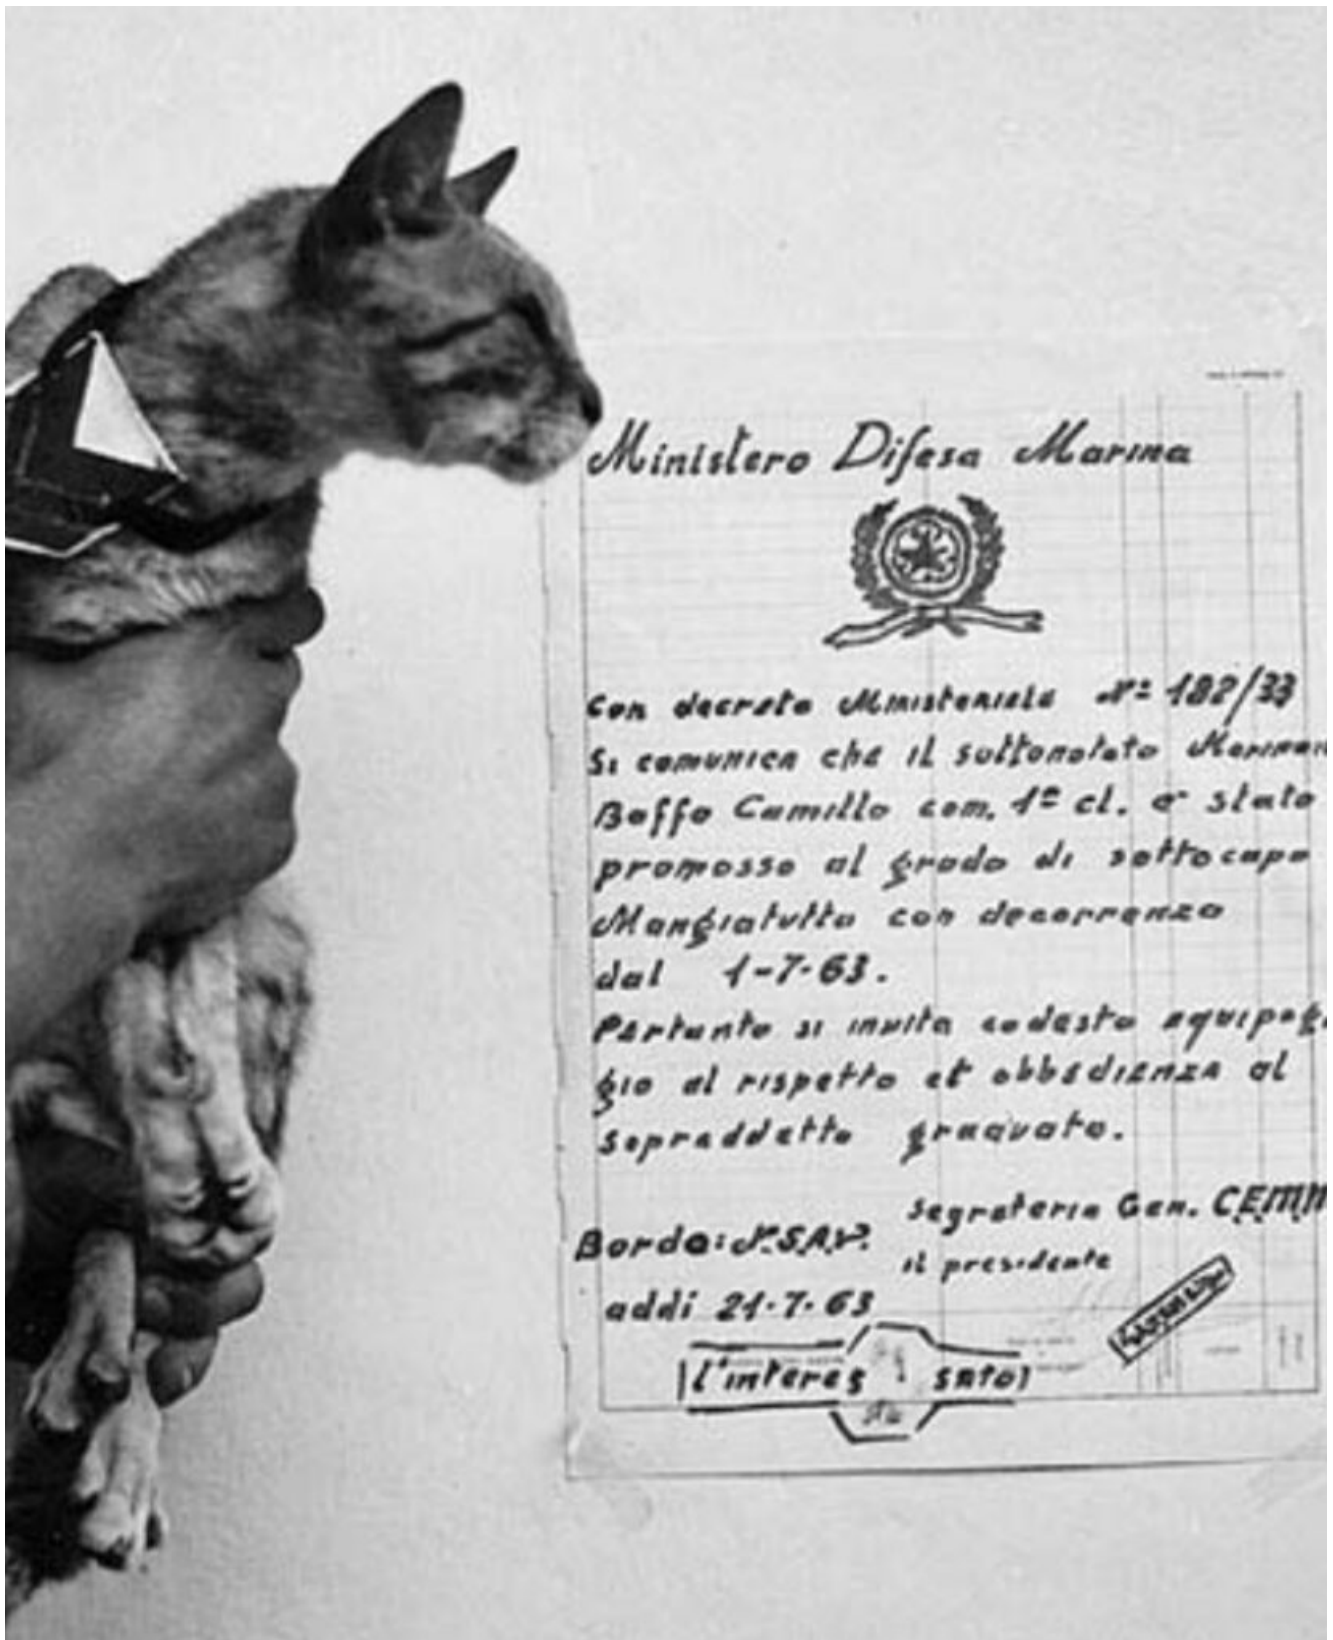 Ministero Difesa Marina
Con decreto Ministeriale N° 182/33
Si comunica che il sottonotato Marinai
Baffo Camillo com. 1ª cl. è stato
promosso al grado di sottocapo
Mangiatutto con decorrenza
dal 1-7-63.
Pertanto si invita codesto equipag
gio al rispetto et obbedienza al
sopraddetto graduato.
Segreteria Gen. CEMM
Bordo: N.S.A.P.
il presidente
addi 21-7-63
l'interes sato